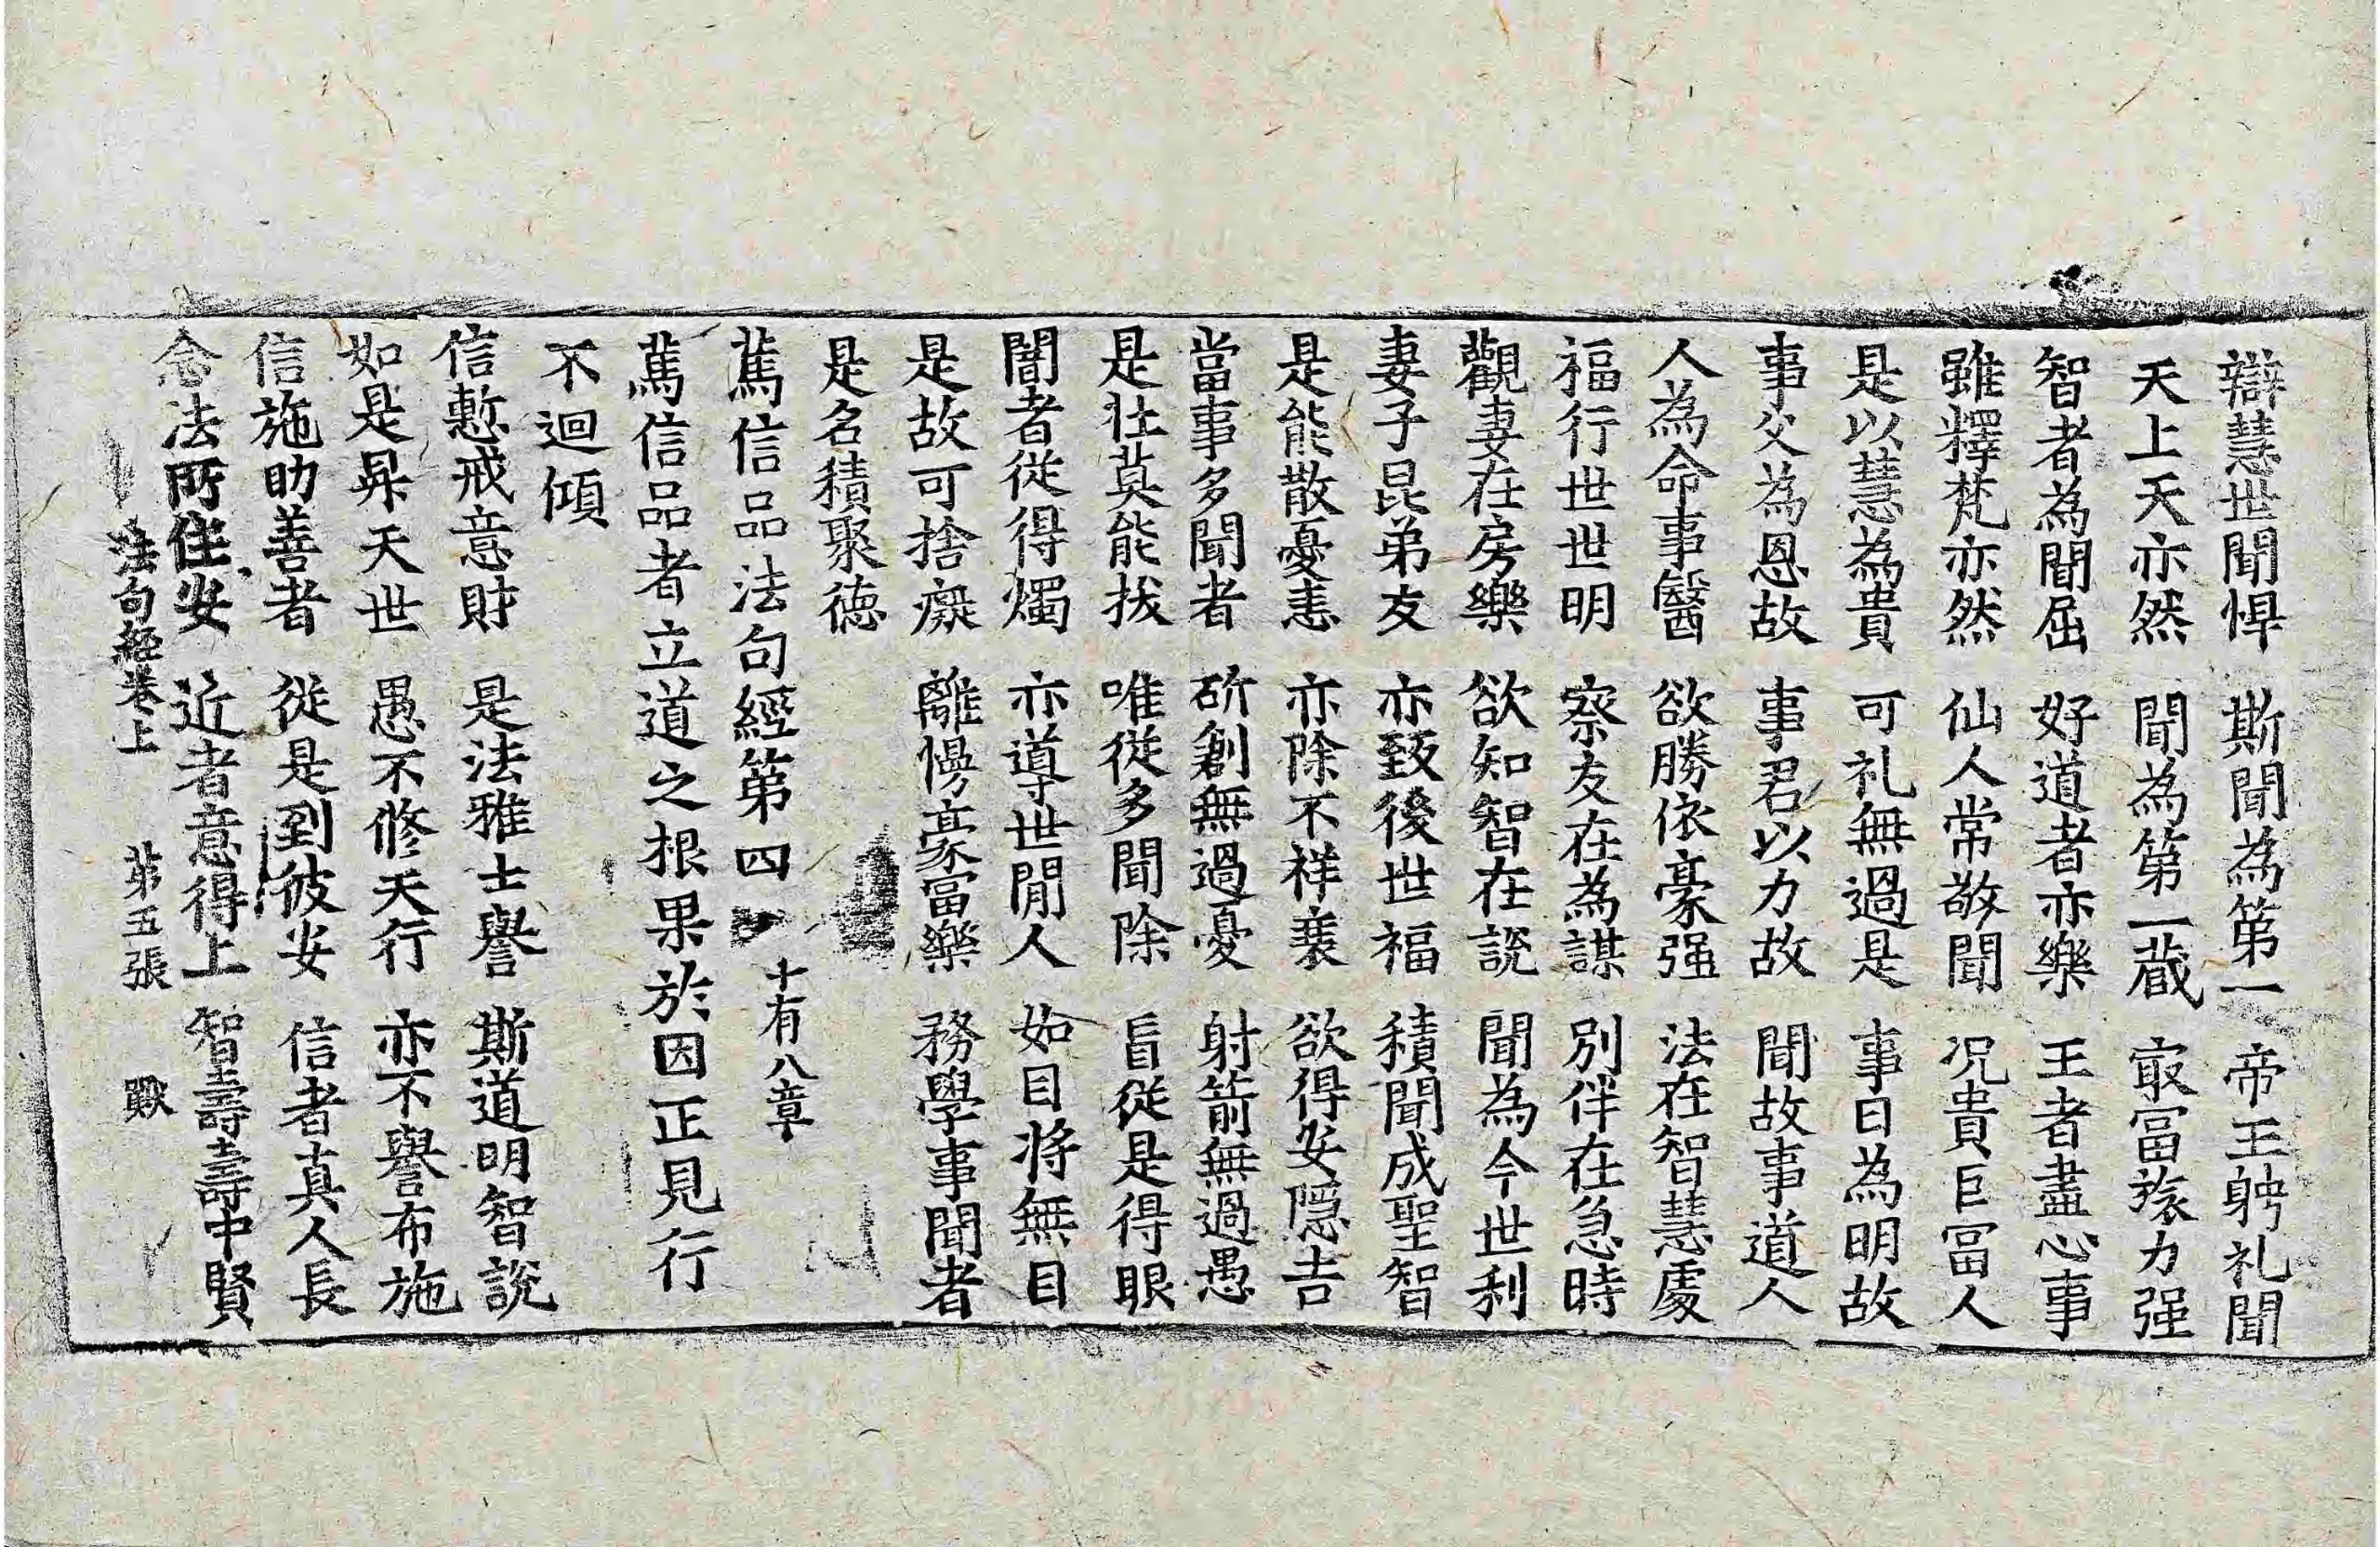 辯慧世聞悍 斯聞為第一 帝王躬礼聞
天上天亦然 聞為第一藏 㝡冨旅力强
智者為聞屈 好道者亦樂 王者盡心事
雖釋梵亦然 仙人常敬聞 况貴巨冨人
是以慧為貴 可礼無過是 事日為明故
事父為恩故 事君以力故 聞故事道人
人為命事醫 欲勝依豪强 法在智慧處
福行世世明 察友在為謀 別伴在急時
觀妻在房樂 欲知智在說 聞為今世利
妻子昆弟友 亦致後世福 積聞成聖智
是能散憂恚 亦除不祥衰 欲得安隱吉
當事多聞者 斫創無過憂 射箭無過愚
是壯莫能拔 唯從多聞除 盲從是得眼
闇者從得燭 亦導世閒人 如目将無目
是故可捨癡 離慢豪冨樂 務學事聞者
是名積聚德
篤信品法句經第四 十有八章
篤信品者立道之根果於因正見行
不迴傾
信慙戒意財 是法雅士譽 斯道明智說
如是昇天世 愚不修天行 亦不譽布施
信施助善者 從是到彼安 信者真人長
念法所住安 近者意得上 智壽壽中賢
法句經卷上 第五張 㪘